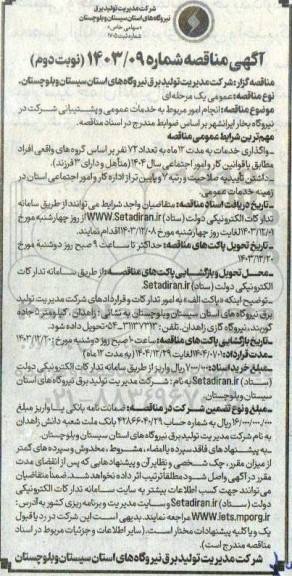 شرکت مدیریت تولید برق
نیروگاه‌های استان سیستان و بلوچستان
(سهامی خاص)
آگهی مناقصه شماره ۱۴۰۳/۰۹ (نوبت دوم)
مناقصه گزار: شرکت مدیریت تولید برق نیروگاه‌های استان سیستان وبلوچستان.
نوع مناقصه: عمومی یک مرحله‌ای
موضوع مناقصه: انجام امور مربوط به خدمات عمومی و پشتیبانی شرکت در
نیروگاه بخار ایرانشهر بر اساس ضوابط مندرج در اسناد مناقصه.
مهم‌ترین شرایط عمومی مناقصه
ـ واگذاری خدمات به مدت ۱۲ ماه به تعداد ۷۲ نفر بر اساس گروه‌های واقعی افراد
مطابق با قوانین کار و امور اجتماعی سال ۱۴۰۴ (متأهل و دارای ۳ فرزند).
ـ داشتن تأییدیه صلاحیت و رتبه ۷ و پایین‌تر از اداره کار و امور اجتماعی استان در
زمینه خدمات عمومی.
ـ تاریخ دریافت اسناد مناقصه: متقاضیان واجد شرایط می‌توانند از طریق سامانه
تدارکات الکترونیکی دولت (ستاد) WWW.Setadiran.ir از روز چهارشنبه مورخ
۱۴۰۳/۱۲/۰۱ لغایت روز چهارشنبه مورخ ۱۴۰۳/۱۲/۰۸ اقدام نمایند.
ـ تاریخ تحویل پاکت‌های مناقصه: حداکثر تا ساعت ۹ صبح روز دوشنبه مورخ
۱۴۰۳/۱۲/۲۰
ـ محل تحویل و بازگشایی پاکت‌های مناقصه: از طریق سامانه تدارکات
الکترونیکی دولت (ستاد) Setadiran.ir
ـ توضیح اینکه «پاکت الف» به امور تدارکات و قراردادهای شرکت مدیریت تولید
برق نیروگاه‌های استان سیستان وبلوچستان به نشانی: زاهدان، کیلومتر ۵ جاده
گوربند، نیروگاه گازی زاهدان. تلفن: ۳۱۱۳۷۳۱۳-۰۵۴ تحویل داده شود.
ـ تاریخ بازگشایی پاکت‌های مناقصه: ساعت ۱۰ صبح روز دوشنبه مورخ: ۱۴۰۳/۱۲/۲۰
ـ مدت قرارداد: ۱۴۰۴/۰۱/۰۱ لغایت ۱۴۰۴/۱۲/۲۹ (به مدت ۱۲ ماه)
ـ مبلغ خرید اسناد: ۷۰۰/۰۰۰ ریال واریز از طریق سامانه تدارکات الکترونیکی دولت
(ستاد) Setadiran.ir به نام: شرکت مدیریت تولید برق نیروگاه‌های استان
سیستان وبلوچستان.
ـ مبلغ و نوع تضمین شرکت در مناقصه: ضمانت‌نامه بانکی یا واریز مبلغ
۱۶/۰۰۰/۰۰۰/۰۰۰ ریال به شماره حساب بانک ملت شعبه دانش زاهدان
به نام شرکت مدیریت تولید برق نیروگاه‌های استان سیستان وبلوچستان.
ـ به پیشنهادهای فاقد سپرده یا امضاء، مشروط، مخدوش و سپرده‌های کمتر
از میزان مقرر، چک شخصی و نظایر آن و پیشنهادهایی که پس از انقضای مدت
مقرر در آگهی واصل شود مطلقاً ترتیب اثر داده نخواهد شد. ضمناً متقاضیان
می‌توانند جهت کسب اطلاعات بیشتر به سایت سامانه تدارکات الکترونیکی
دولت (ستاد) Setadiran.ir و سایت مدیریت و برنامه‌ریزی کشور به آدرس:
WWW.iets.mporg.ir مراجعه نمایند. بدیهی است این شرکت در رد یا قبول
یک و یا کلیه پیشنهادات مختار است. (سایر اطلاعات و جزئیات مربوط در اسناد
مناقصه مندرج است).
شرکت مدیریت تولید برق نیروگاه‌های استان سیستان وبلوچستان